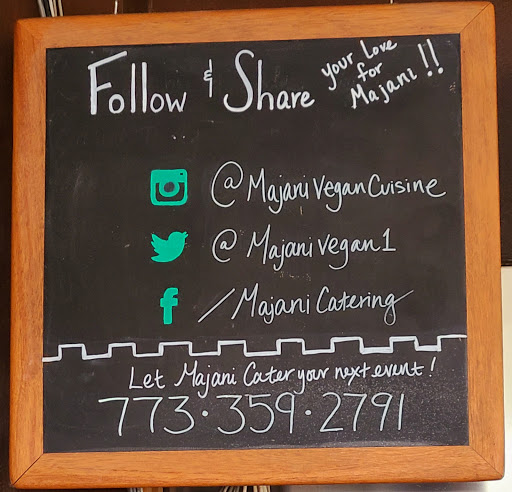 Follow & Share your love for Majani!!
@MajaniVeganCuisine
@Majanivegan1
/MajaniCatering
Let Majani Cater your next event!
773·359·2791